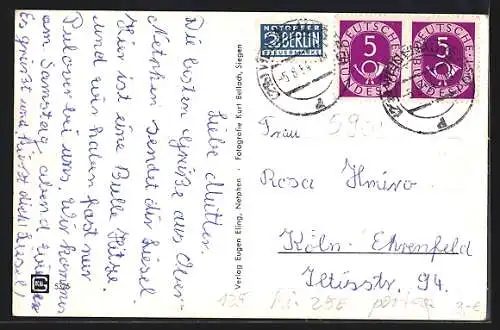 Liebe Mutter.
Die besten Grüße aus Ober-
Netphen sendet dir Liesel.
Hier ist eine Bulle Hitze
und wir haben fast nur
Pulover bei uns. Wir kommen
am Samstag abend zurück
Es grüßt und küsst dich Liesel!
Verlag Eugen Eling, Netphen · Fotografie Kurt Beilach, Siegen
5366
NOTOPFER
2 BERLIN
STEUERMARKE
DEUTSCHE
5
BUNDESPOST
DEUTSCHE
5
BUNDESPOST
Frau
590
Rosa
Köln-Ehrenfeld
Iltisstr. 94.